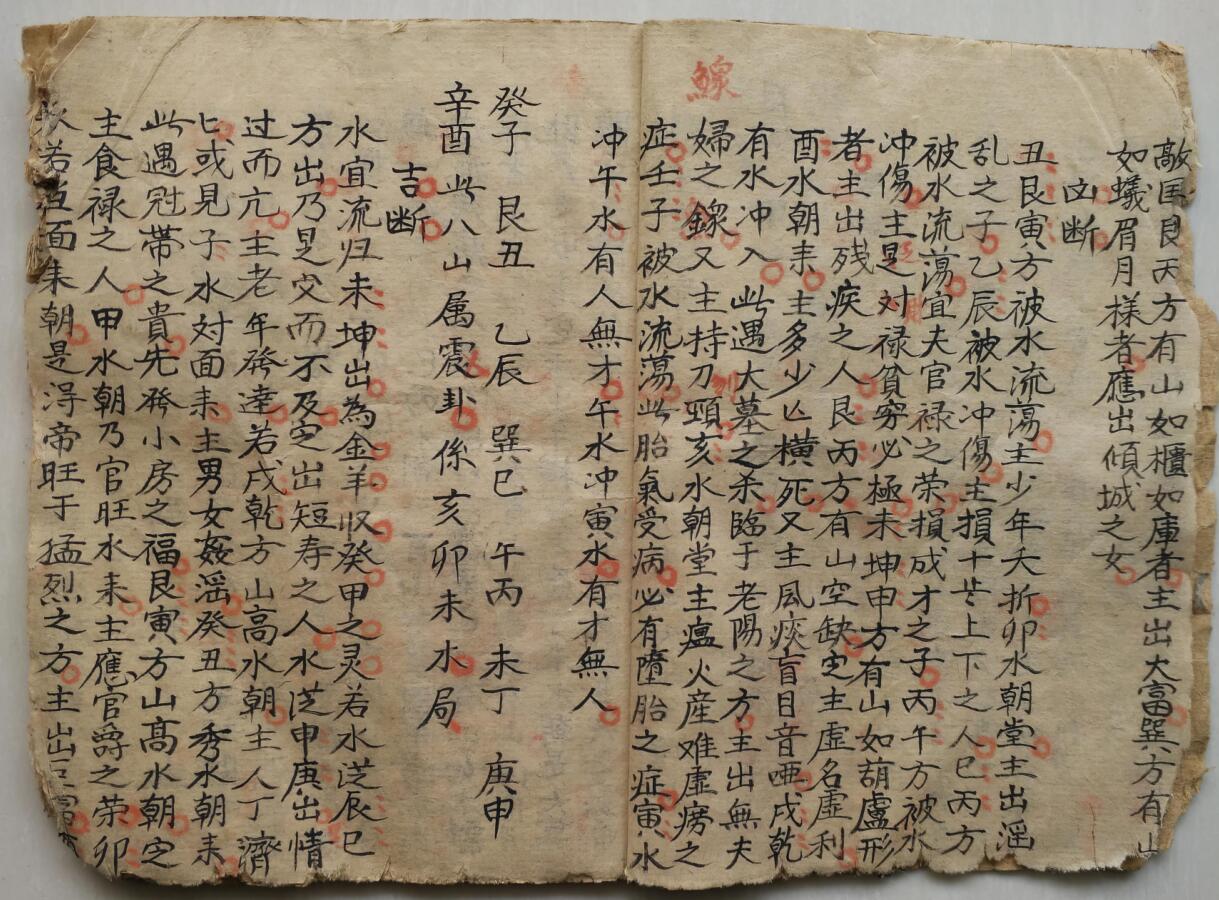 敵国艮丙方有山如櫃如庫者主出大富巽方有山
如蟻眉月樣者應出傾城之女
凶断
丑艮寅方被水流蕩主少年夭折卯水朝堂主出滛
乱之子乙辰被水冲傷主損十岂上下之人巳丙方
被水流蕩宜夫官禄之荣損成才之子丙午方被水
冲傷主是対禄貧穷必極未坤申方有山如葫蘆形
者主出残疾之人艮丙方有山空缺定主虛名虛利
酉水朝来主多少亡横死又主風痰盲目音啞戌乾
有水冲入此遇大墓之杀臨于老陽之方主出無夫
婦之鏢又主持刀頸亥水朝堂主瘟火産难虛痨之
鰥
刎
症壬子被水流蕩此胎氣受病必有墮胎之症寅水
冲午水有人無才午水冲寅水有才無人
癸子 艮丑 乙辰 巽巳 午丙 未丁 庚申
辛酉此八山属震卦係亥卯未水局
吉断
水宜流归未坤出為金羊收癸甲之灵若水泛辰巳
方出乃是交而不及定出短寿之人水泛申庚出情
过而亢主老年發達若戌乾方山高水朝主人丁濟
匕或見子水対面来主男女姦滛癸丑方秀水朝来
此遇冠带之貴先發小房之福艮寅方山高水朝定
主食禄之人甲水朝乃官旺水来主應官爵之荣卯
水若当面来朝是浔帝旺于猛烈之方主出巨富